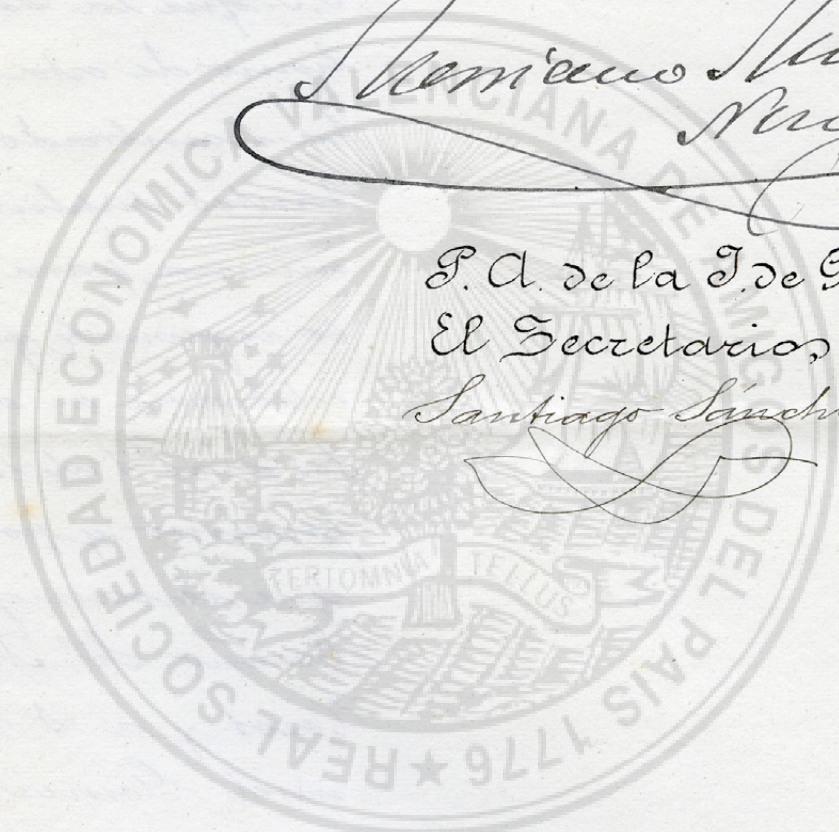 P. A. de la J. de G
El Secretario,
Santiago Sánch
REAL SOCIEDAD ECONOMICA VALENCIANA DE AMIGOS DEL PAIS 1776 ★
FERT OMNIA TELLUS